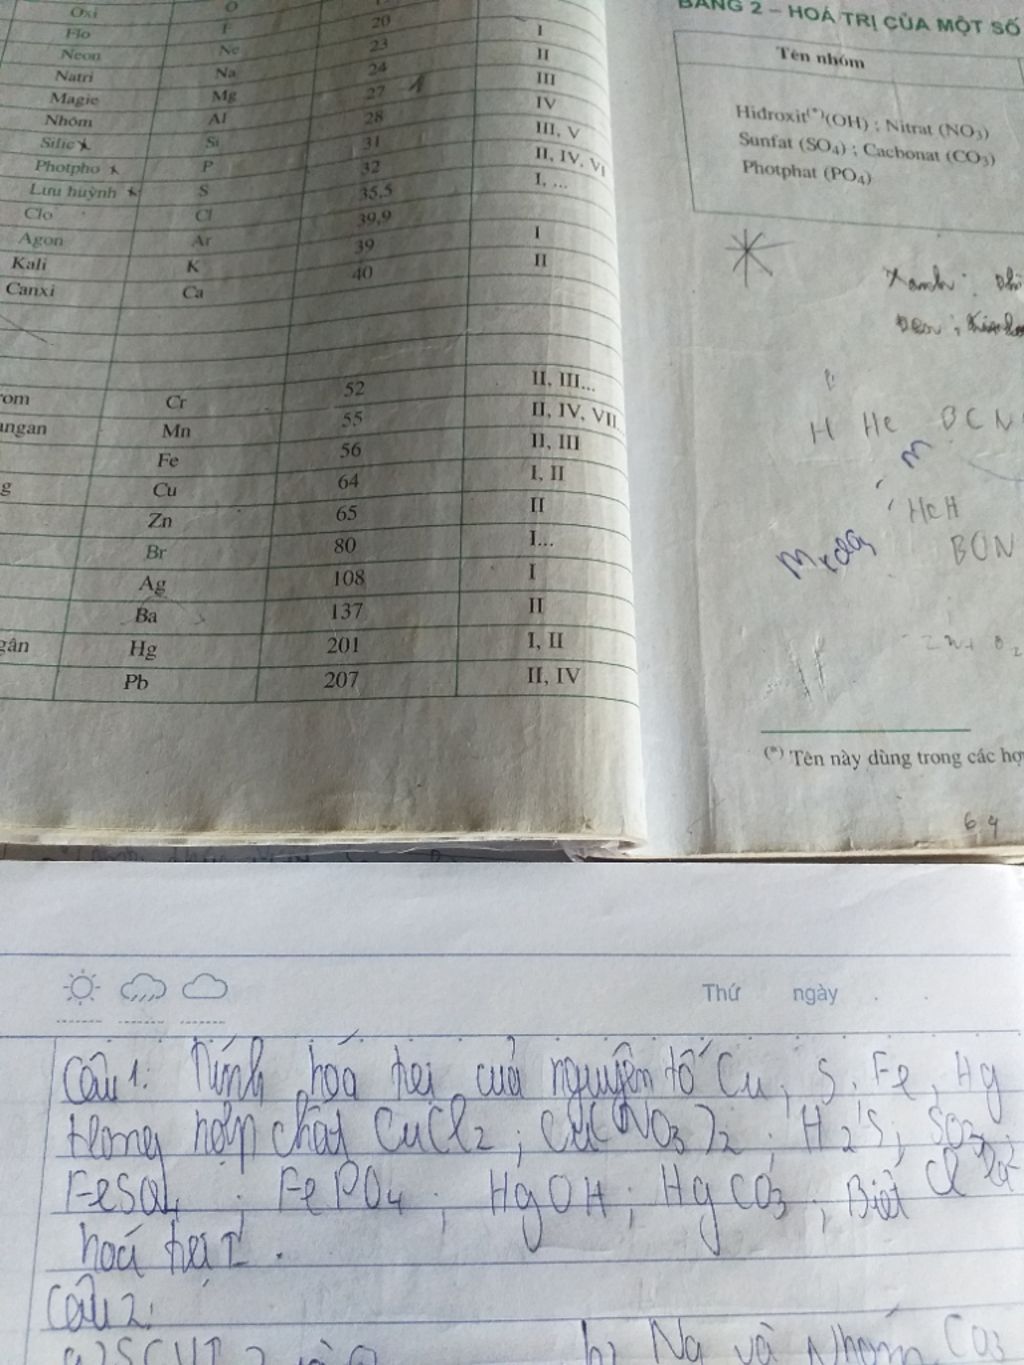 Oxi O
Flo F 20 I
Neon Ne 23 II
Natri Na 24 III
Magie Mg 27 IV
Nhôm Al 28 III, V
Silic Si 31 II, IV, VI
Photpho P 32 I, ...
Lưu huỳnh S 35,5
Clo Cl 39,9 I
Agon Ar 39 II
Kali K 40
Canxi Ca
rom Cr 52 II, III...
angan Mn 55 II, IV, VII
Fe 56 II, III
g Cu 64 I, II
Zn 65 II
Br 80 I...
Ag 108 I
Ba 137 II
gân Hg 201 I, II
Pb 207 II, IV
BẢNG 2 – HOÁ TRỊ CỦA MỘT SỐ
Tên nhóm
Hiđroxit(*)(OH) ; Nitrat (NO3)
Sunfat (SO4) ; Cachonat (CO3)
Photphat (PO4)
Xanh :
Đen :
H He B C N
m
HeH
BCN
Zn + O2
(*) Tên này dùng trong các hợ
64
Thứ ngày
Câu 1: Tính hóa trị của nguyên tố Cu, S, Fe, Hg
trong hợp chất CuCl2 ; Cu(NO3)2 ; H2S ; SO2
FeSO4 ; FePO4 ; HgOH ; HgCO3 ; Biết Cl
hoá trị I .
Câu 2:
b) Na và Nhóm CO3